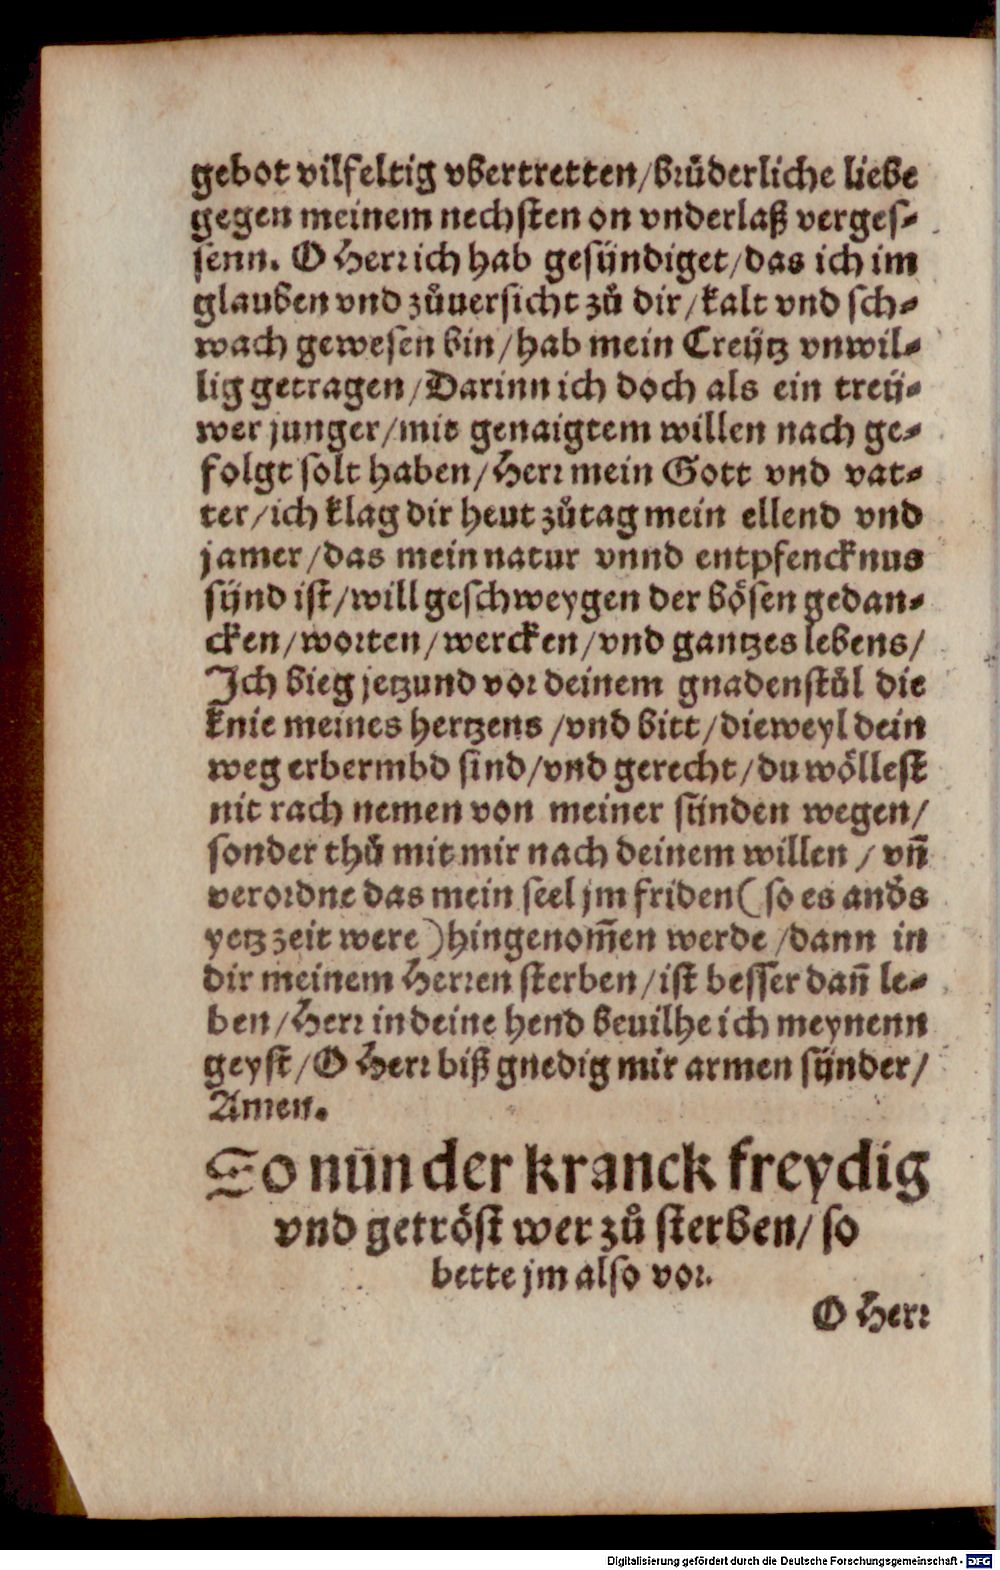 gebot vilfeltig vbertretten/brůderliche liebe
gegen meinem nechsten on vnderlaß verges-
senn. O Herr ich hab gesündiget/das ich im
glauben vnd zůuersicht zů dir/kalt vnd sch-
wach gewesen bin/hab mein Creütz vnwil-
lig getragen/Darinn ich doch als ein treü-
wer junger/mit genaigtem willen nach ge-
folgt solt haben/Herr mein Gott vnd vat-
ter/ich klag dir heut zůtag mein ellend vnd
jamer/das mein natur vnnd entpfencknus
sünd ist/will geschweygen der bösen gedan-
cken/worten/wercken/vnd gantzes lebens/
Ich bieg jetzund vor deinem gnadenstůl die
knie meines hertzens/vnd bitt/dieweyl dein
weg erbermbd sind/vnd gerecht/du wöllest
nit rach nemen von meiner sünden wegen/
sonder thů mit mir nach deinem willen/vñ
verordne das mein seel jm friden(so es anďs
yetz zeit were)hingenom̄en werde/dann in
dir meinem Herren sterben/ist besser dañ le-
ben/Herr in deine hend beuilhe ich meynenn
geyst/O Herr biß gnedig mir armen sünder/
Amen.
So nun der kranck freydig
vnd getröst wer zů sterben/so
bette jm also vor.
O Herr
Digitalisierung gefördert durch die Deutsche Forschungsgemeinschaft - DFG